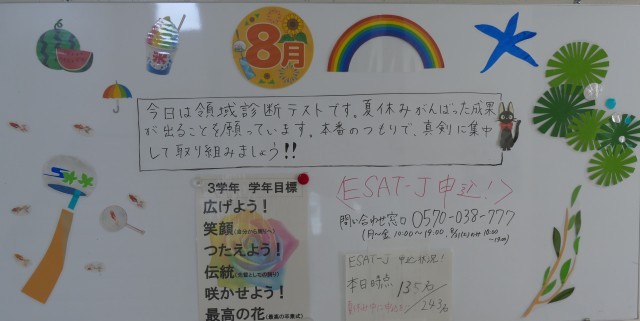 8月
今日は領域診断テストです。夏休みがんばった成果
が出ることを願っています。本番のつもりで、真剣に集中
して取り組みましょう!!
3学年 学年目標
広げよう！
笑顔(自分から周りへ)
つたえよう！
伝統(先輩としての誇り)
咲かせよう！
最高の花(最高の卒業式)
〈ESAT-J 申込！〉
問い合わせ窓口 0570-038-777
(月〜金 10:00〜19:00
ESAT-J 申込状況！
本日時点 135名
243名